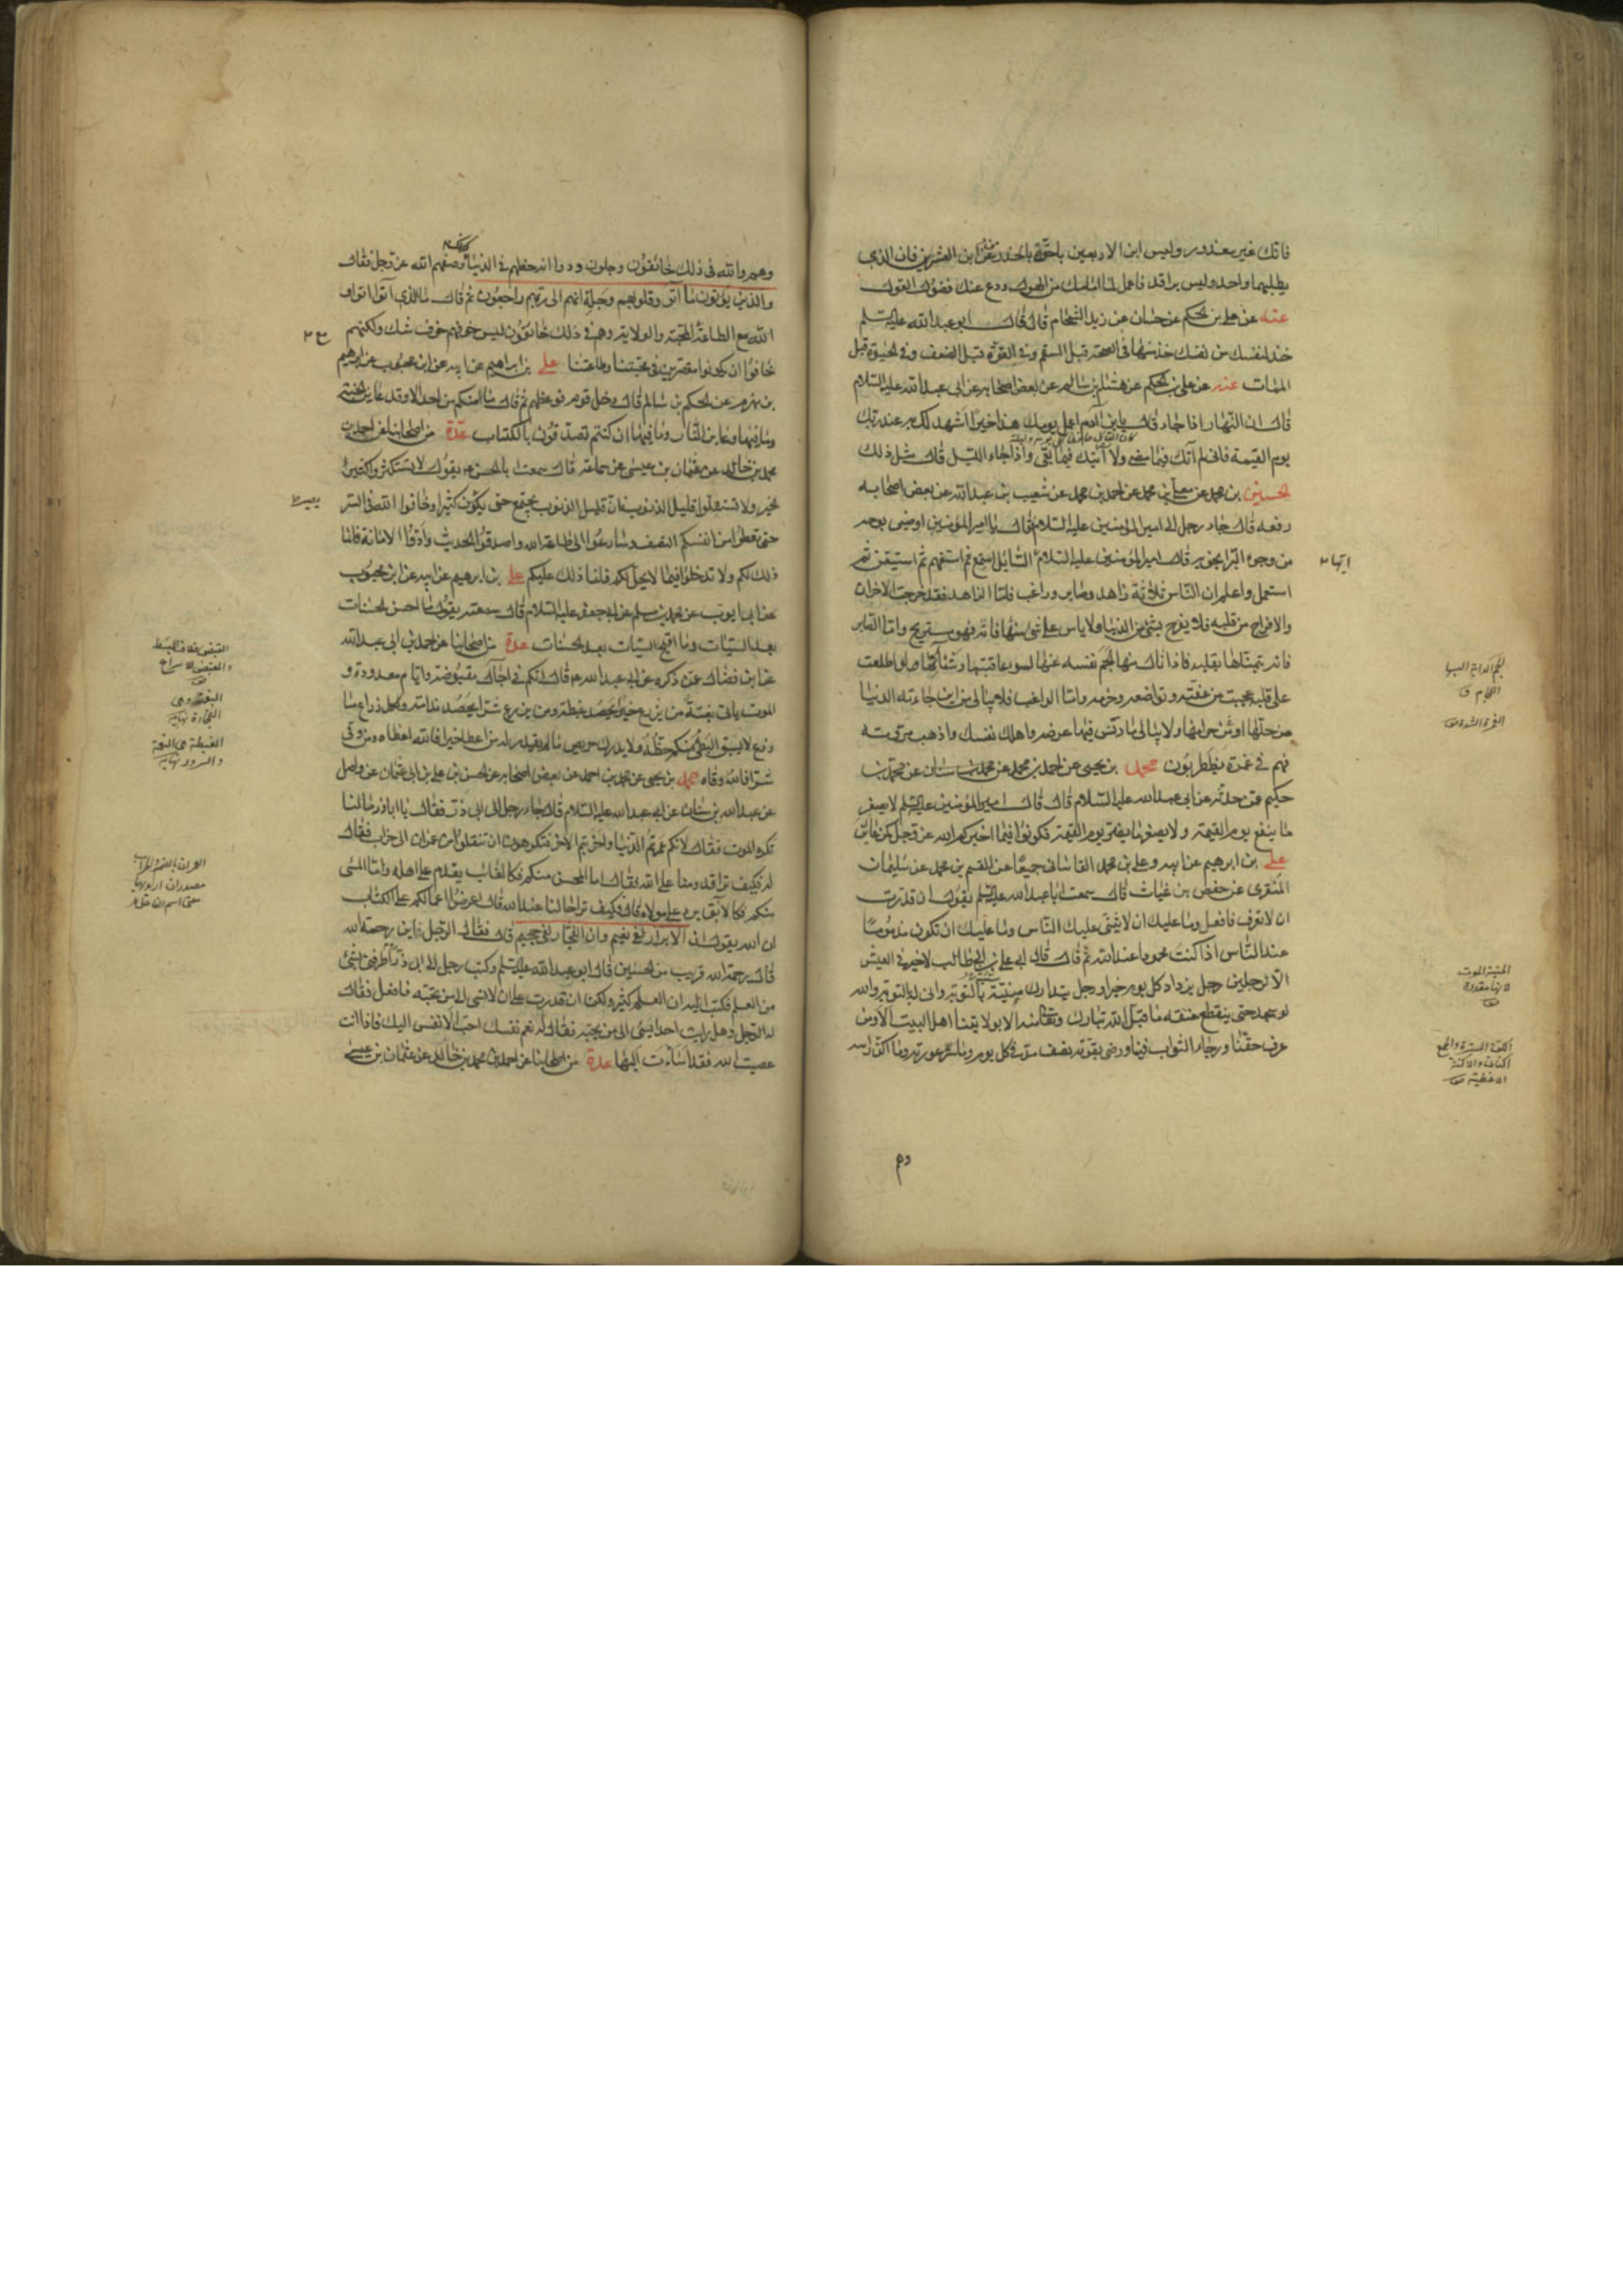 فانك غير معذور وليس ابن الاربعين باحق بالحذر من ابن العشرين فان الذي
يطلبهما واحد وليس براقد فاعمل لما امامك من الهول ودع عنك فضول القول
عنه عن علي بن الحكم عن حسان عن زيد الشحام قال قال ابو عبد الله عليه السلم
خذ لنفسك من نفسك خذ منها في الصحة قبل السقم وفي القوة قبل الضعف وفي الحيوة قبل
الممات عنه عن علي بن الحكم عن هشام بن سالم عن بعض اصحابه عن ابي عبد الله عليه السلام
قال ان النهار اذا جاء قال يا ابن آدم اعمل في يومك هذا خيرا اشهد لك به عند ربك
يوم القيمة فاني لم آتك فيما مضى ولا آتيك فيما بقي واذا جاء الليل قال مثل ذلك
الحسين بن محمد عن معلى بن محمد عن احمد بن محمد عن شعيب بن عبد الله عن بعض اصحابه
رفعه قال جاء رجل الى امير المؤمنين عليه السلام فقال يا امير المؤمنين اوصني بوجه
من وجوه البر انجو به قال امير المؤمنين عليه السلام ايها السائل استمع ثم استفهم ثم استيقن ثم
استعمل واعلم ان الناس ثلاثة زاهد وصابر وراغب فاما الزاهد فقد خرجت الاحزان
والافراح من قلبه فلا يفرح بشئ من الدنيا ولا ياس على شئ منها فاته فهو مستريح واما الصابر
فانه يتمناها بقلبه فاذا نال منها الجم نفسه عنها لسوء عاقبتها وشنآنها لو اطلعت
على قلبه عجبت من عفته وتواضعه وحزمه واما الراغب فلا يبالي من اين جاءته الدنيا
من حلها او من حرامها ولا يبالي ما دنس فيها عرضه واهلك نفسه واذهب مروته
فهم في غمرة يضطربون محمد بن يحيى عن احمد بن محمد عن محمد بن سنان عن محمد بن
حكيم عمن حدثه عن ابي عبد الله عليه السلام قال قال امير المؤمنين عليه السلم لا يصغر
ما ينفع يوم القيمة ولا يصغر ما يضر يوم القيمة فكونوا فيما اخبركم الله عز وجل كمن عاين
علي بن ابرهيم عن ابيه وعلي بن محمد القاساني جميعا عن القسم بن محمد عن سليمان
المنقري عن حفص بن غياث قال سمعت ابا عبد الله عليه السلم يقول ان قدرت
ان لا تعرف فافعل وما عليك ان لا يثني عليك الناس وما عليك ان تكون مذموما
عند الناس اذا كنت محمودا عند الله ثم قال قال ابي علي بن ابي طالب لا خير في العيش
الا لرجلين رجل يزداد كل يوم خيرا ورجل يتدارك منيته بالتوبة وانى له بالتوبة والله
لو سجد حتى ينقطع عنقه ما قبل الله تبارك وتعالى منه الا بولايتنا اهل البيت الا ومن
عرف حقنا ورجاء الثواب فينا ورضي بقوته نصف مد في كل يوم وما ستر عورته وما اكن راسه
ايها
لجم الدابة البسها
اللجام ق
الغمرة الشدة
المنية الموت
لانها مقدرة
الكنة السترة والجمع
اكنان والاكنة
الاغطية
وهم والله في ذلك خائفون وجلون ودوا انه حظهم في الدنيا وكذلك وصفهم الله عز وجل فقال
والذين يؤتون ما آتوا وقلوبهم وجلة انهم الى ربهم راجعون ثم قال ما الذي آتوا اتوا و
الله مع الطاعة المحبة والولاية وهم في ذلك خائفون ليس خوفهم خوف شك ولكنهم
خافوا ان يكونوا مقصرين في محبتنا وطاعتنا علي بن ابراهيم عن ابيه عن ابن محبوب عن ابرهيم
بن مهزم عن الحكم بن سالم قال دخل قوم فوعظهم ثم قال ما منكم من احد الا وقد عاين الجنة
وما فيها وعاين النار وما فيها ان كنتم تصدقون بالكتاب عدة من اصحابنا عن احمد بن
محمد بن خالد عن عثمان بن عيسى عن سماعة قال سمعت ابا الحسن ع يقول لا تستكثروا كثير
الخير ولا تستقلوا قليل الذنوب فان قليل الذنوب يجتمع حتى يكون كثيرا وخافوا الله في السر
حتى تعطوا من انفسكم النصف وسارعوا الى طاعة الله واصدقوا الحديث وادوا الامانة فانما
ذلك لكم ولا تدخلوا فيما لا يحل لكم فانما ذلك عليكم علي بن ابرهيم عن ابيه عن ابن محبوب
عن ابي ايوب عن محمد بن مسلم عن ابي جعفر عليه السلام قال سمعته يقول ما احسن الحسنات
بعد السيئات وما اقبح السيئات بعد الحسنات عدة من اصحابنا عن احمد بن ابي عبد الله
عن ابن فضال عمن ذكره عن ابي عبد الله ع قال انكم في اجال مقبوضة وايام معدودة و
الموت ياتي بغتة من يزرع خيرا يحصد غبطة ومن يزرع شرا يحصد ندامة ولكل زارع ما
زرع لا يسبق البطئ منكم حظه ولا يدرك حريص ما لم يقدر له من اعطي خيرا فالله اعطاه ومن وقي
شرا فالله وقاه محمد بن يحيى عن محمد بن احمد عن بعض اصحابه عن الحسن بن علي بن ابي عثمان عن واصل
عن عبد الله بن سنان عن ابي عبد الله عليه السلام قال جاء رجل الى ابي ذر فقال يا ابا ذر ما لنا
نكره الموت فقال لانكم عمرتم الدنيا واخربتم الاخرة فتكرهون ان تنقلوا من عمران الى خراب فقال
له فكيف ترى قدومنا على الله فقال اما المحسن منكم فكالغائب يقدم على اهله واما المسئ
منكم فكالآبق يرد على مولاه قال فكيف ترى حالنا عند الله قال اعرضوا اعمالكم على الكتاب
ان الله يقول ان الابرار لفي نعيم وان الفجار لفي جحيم قال فقال الرجل فاين رحمة الله
قال رحمة الله قريب من المحسنين قال ابو عبد الله عليه السلم وكتب رجل الى ابي ذر اطرفني بشئ
من العلم فكتب اليه ان العلم كثير ولكن ان قدرت على ان لا تسئ الى من تحبه فافعل فقال
له الرجل وهل رايت احدا يسئ الى من يحبه فقال له نعم نفسك احب الانفس اليك فاذا انت
عصيت الله فقد اسأت اليها عدة من اصحابنا عن احمد بن محمد بن خالد عن عثمان بن عيسى
القبض خلاف البسط
والقبض الاسراع
البغتة وهي
الفجاءة نهاية
الغبطة هي النعمة
والسرور نهاية
العمران بالضم والخراب
مصدران اريد بهما
معنى اسم الفاعل